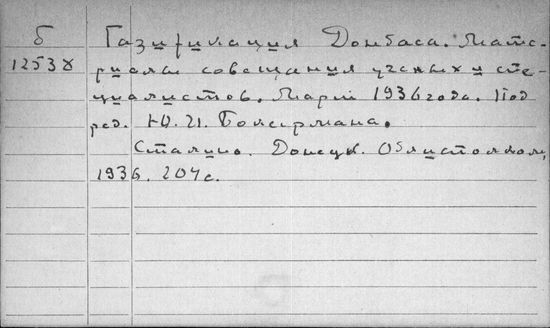 б
12538
Газификация Донбаса. Мате-
риалы совещания ученых и спе-
циалистов. Март 1936 года. Под
ред. Ю. И. Боксермана.
Сталино. Донецк. Облисполком,
1936. 204 с.